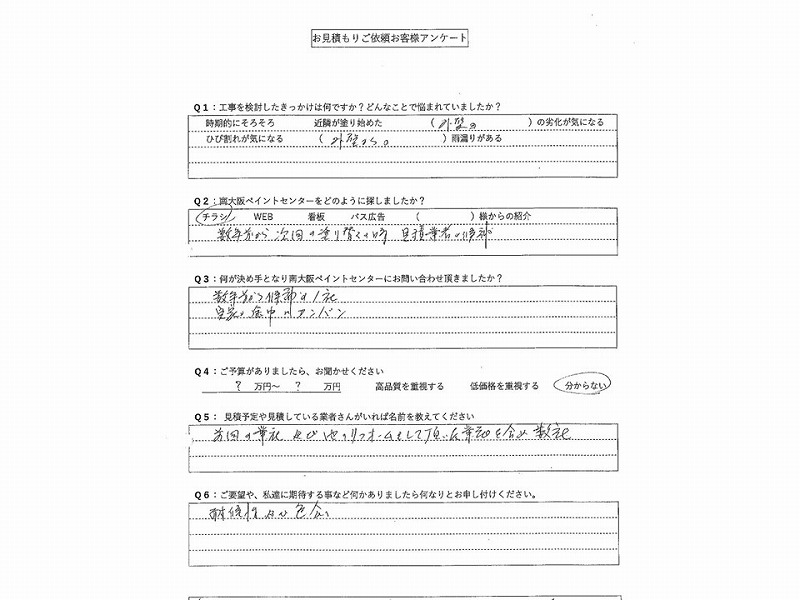 お見積もりご依頼お客様アンケート
Q1：工事を検討したきっかけは何ですか？どんなことで悩まれていましたか？
時期的にそろそろ 近隣が塗り始めた （ 外壁の ）の劣化が気になる
ひび割れが気になる （ 外壁から。 ）雨漏りがある
Q2：南大阪ペイントセンターをどのように探しましたか？
チラシ WEB 看板 バス広告 （ ）様からの紹介
数年前から 次回の塗り替えの時 見積業者の候補
Q3：何が決め手となり南大阪ペイントセンターにお問い合わせ頂きましたか？
数年前から候補の1社
Q4：ご予算がありましたら、お聞かせください
? 万円～ ? 万円 高品質を重視する 低価格を重視する 分からない
Q5： 見積予定や見積している業者さんがいれば名前を教えてください
前回の業社 及び 他のリフォームをして頂いた業社を含め 数社
Q6：ご要望や、私達に期待する事など何かありましたら何なりとお申し付けください。
耐候性及び色合い